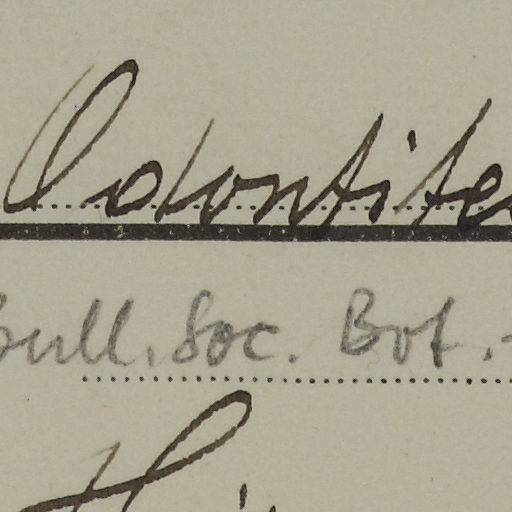 Odontites
Bull. Soc. Bot.